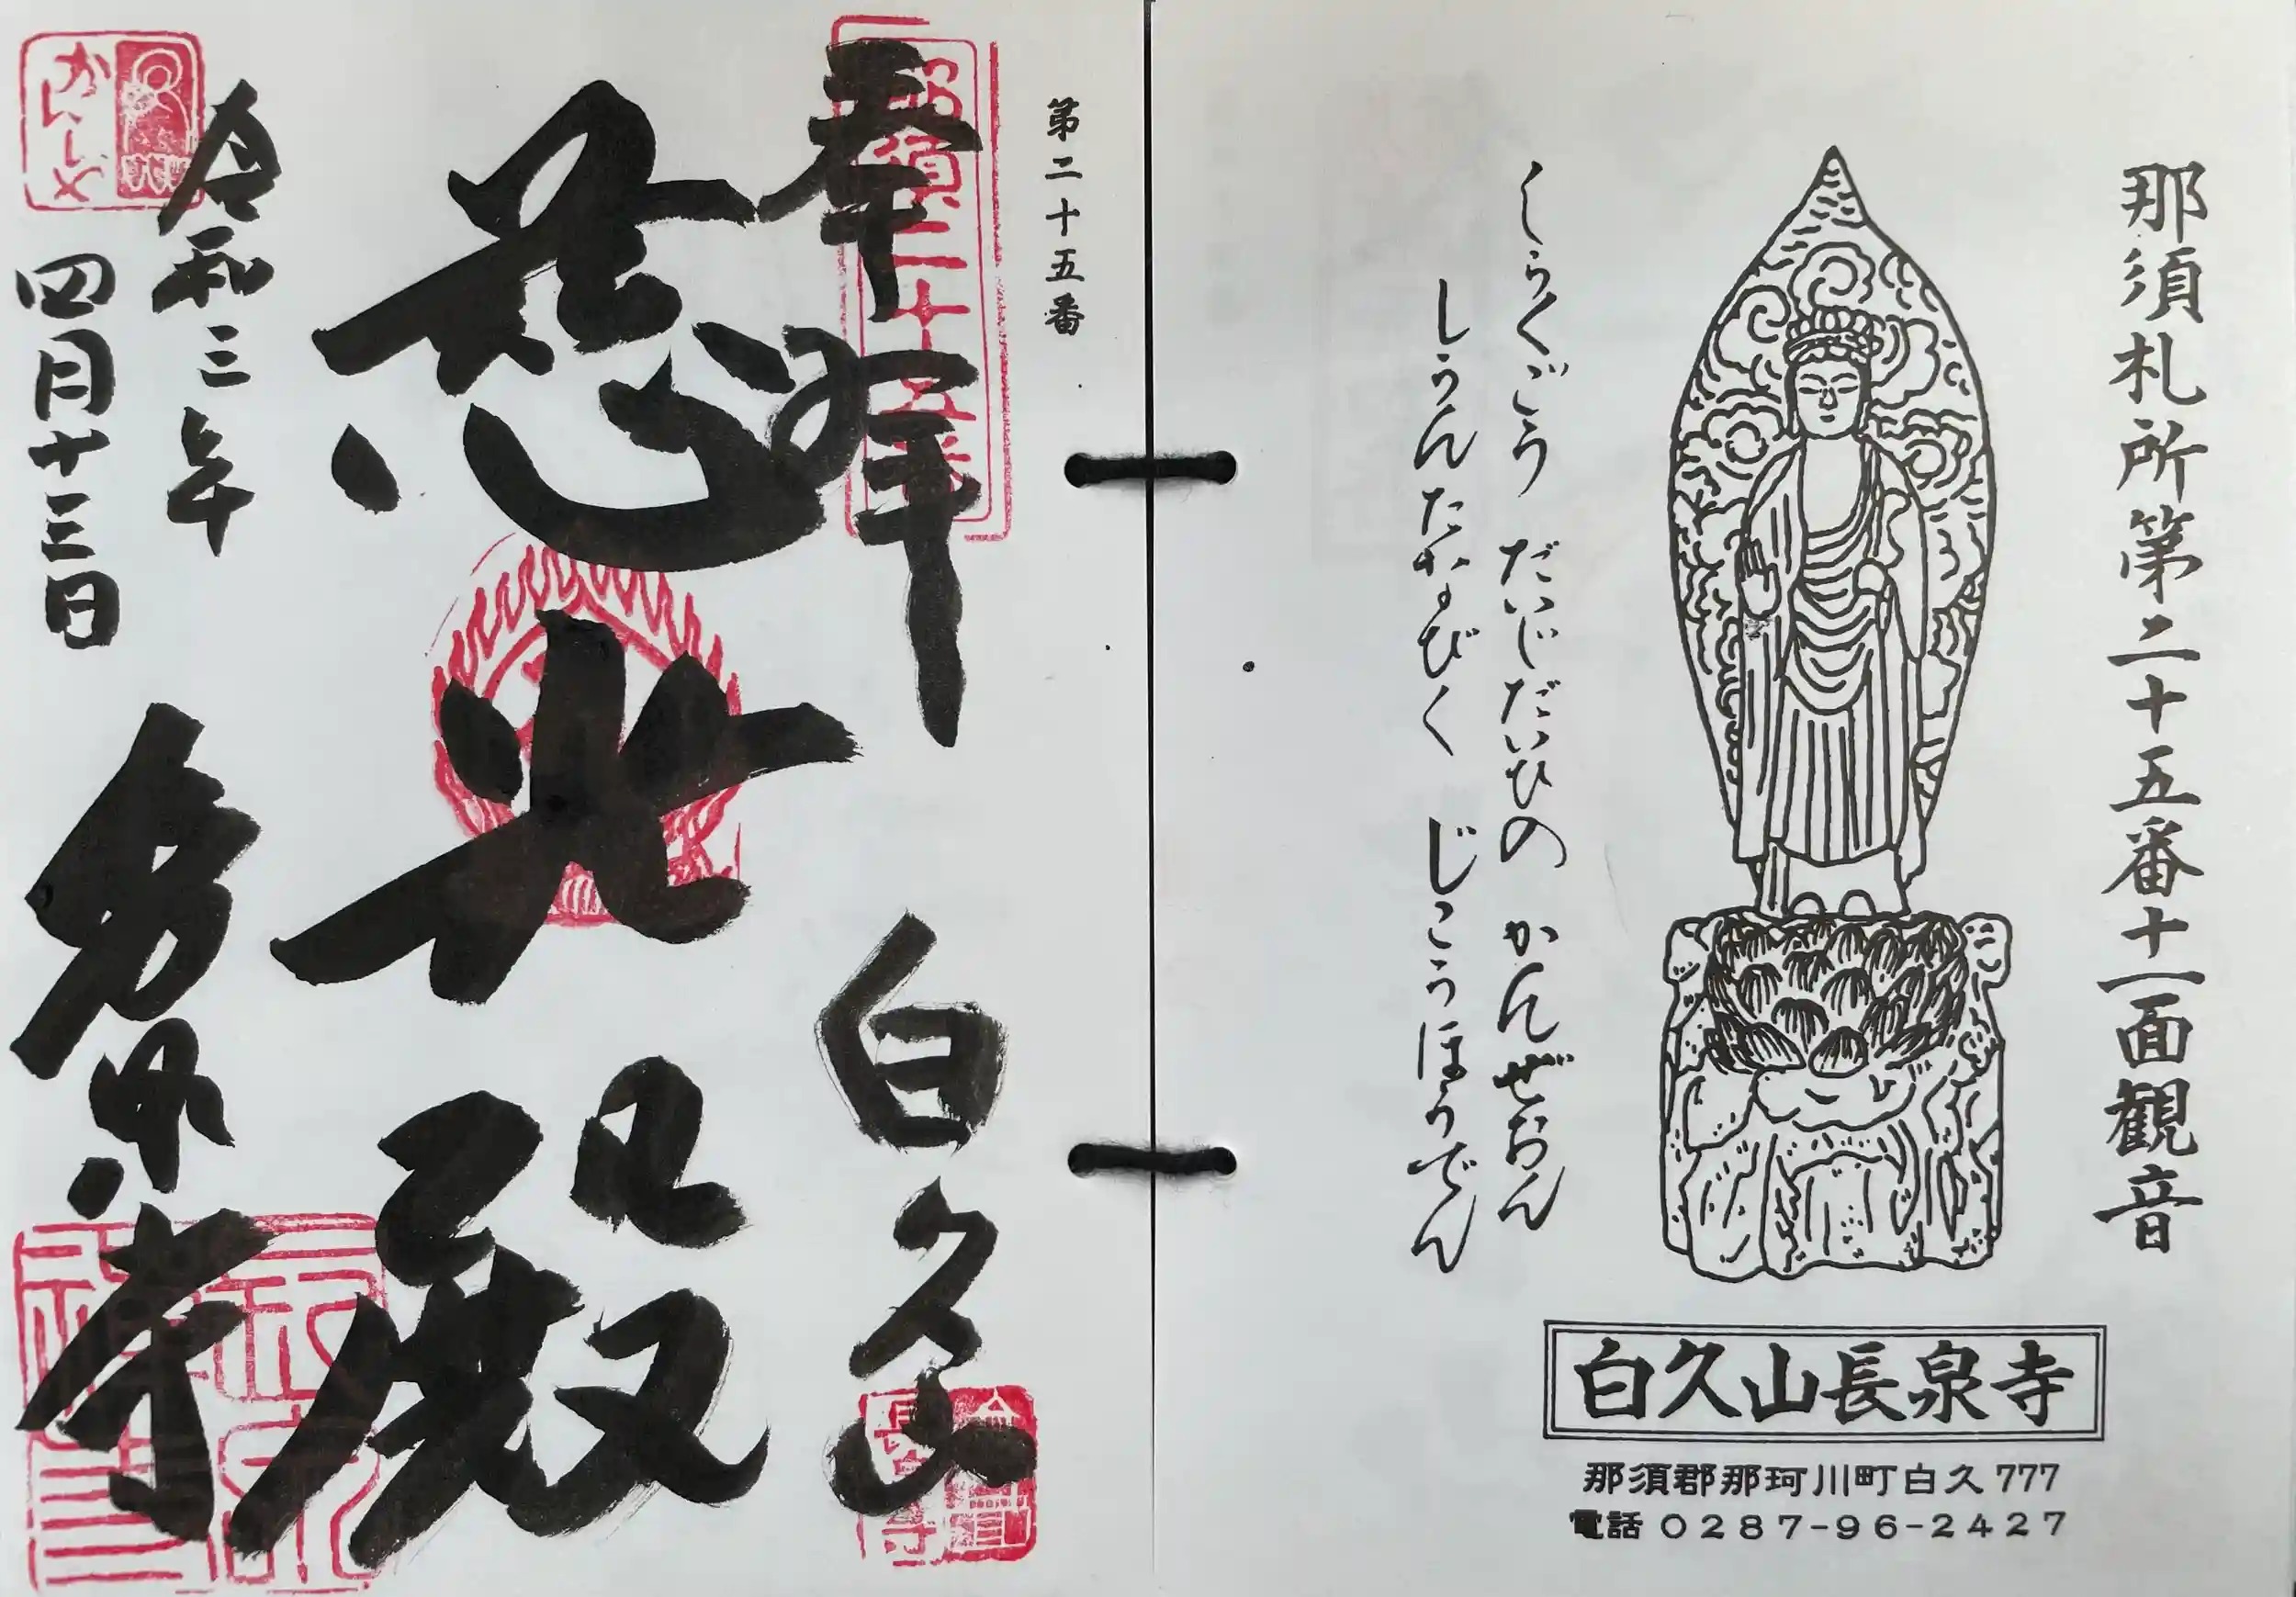 那須札所第二十五番十一面観音
しらくごう だいじだいひの かんぜおん
しうんたなびく じこうほうでん
白久山長泉寺
那須郡那珂川町白久777
電話 0287-96-2427
第二十五番
奉拝 白久山
那須二十五番
慈悲殿
令和三年
四月十三日
長泉寺